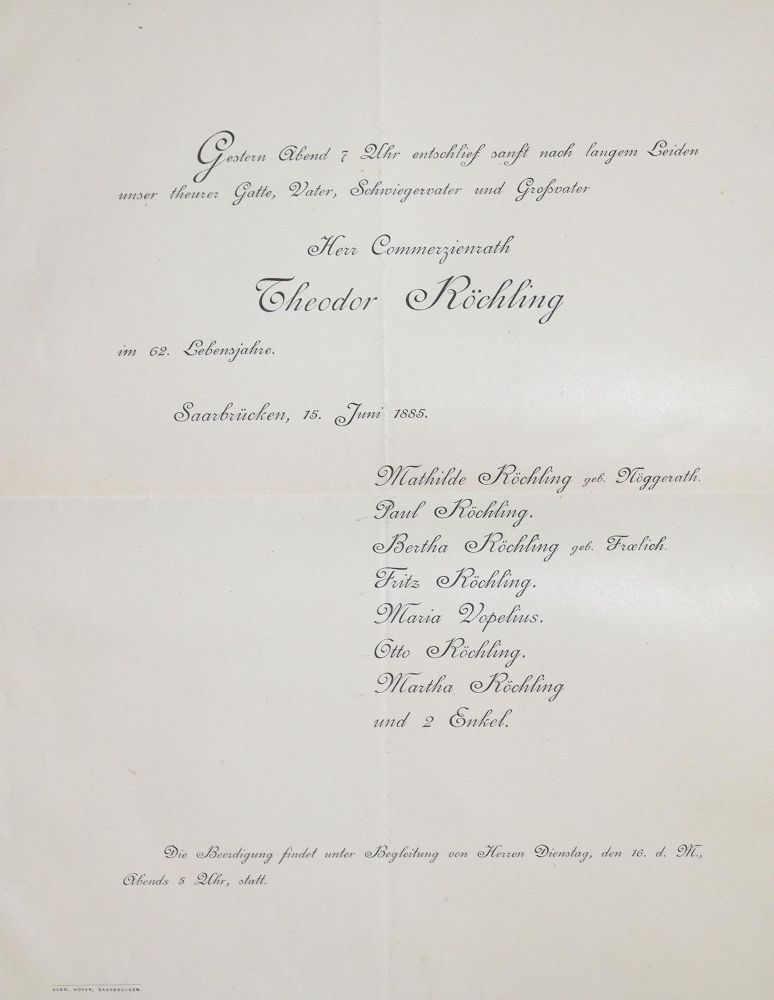 Gestern Abend 7 Uhr entschlief sanft nach langem Leiden
unser theurer Gatte, Vater, Schwiegervater und Großvater
Herr Commerzienrath
Theodor Röchling
im 62. Lebensjahre.
Saarbrücken, 15. Juni 1885.
Mathilde Röchling geb. Nöggerath.
Paul Röchling.
Bertha Röchling geb. Frœlich.
Fritz Röchling.
Maria Vopelius.
Otto Röchling.
Martha Röchling
und 2 Enkel.
Die Beerdigung findet unter Begleitung von Herren Dienstag, den 16. d. M.,
Abends 5 Uhr, statt.
GEBR. HOFER, SAARBRÜCKEN.